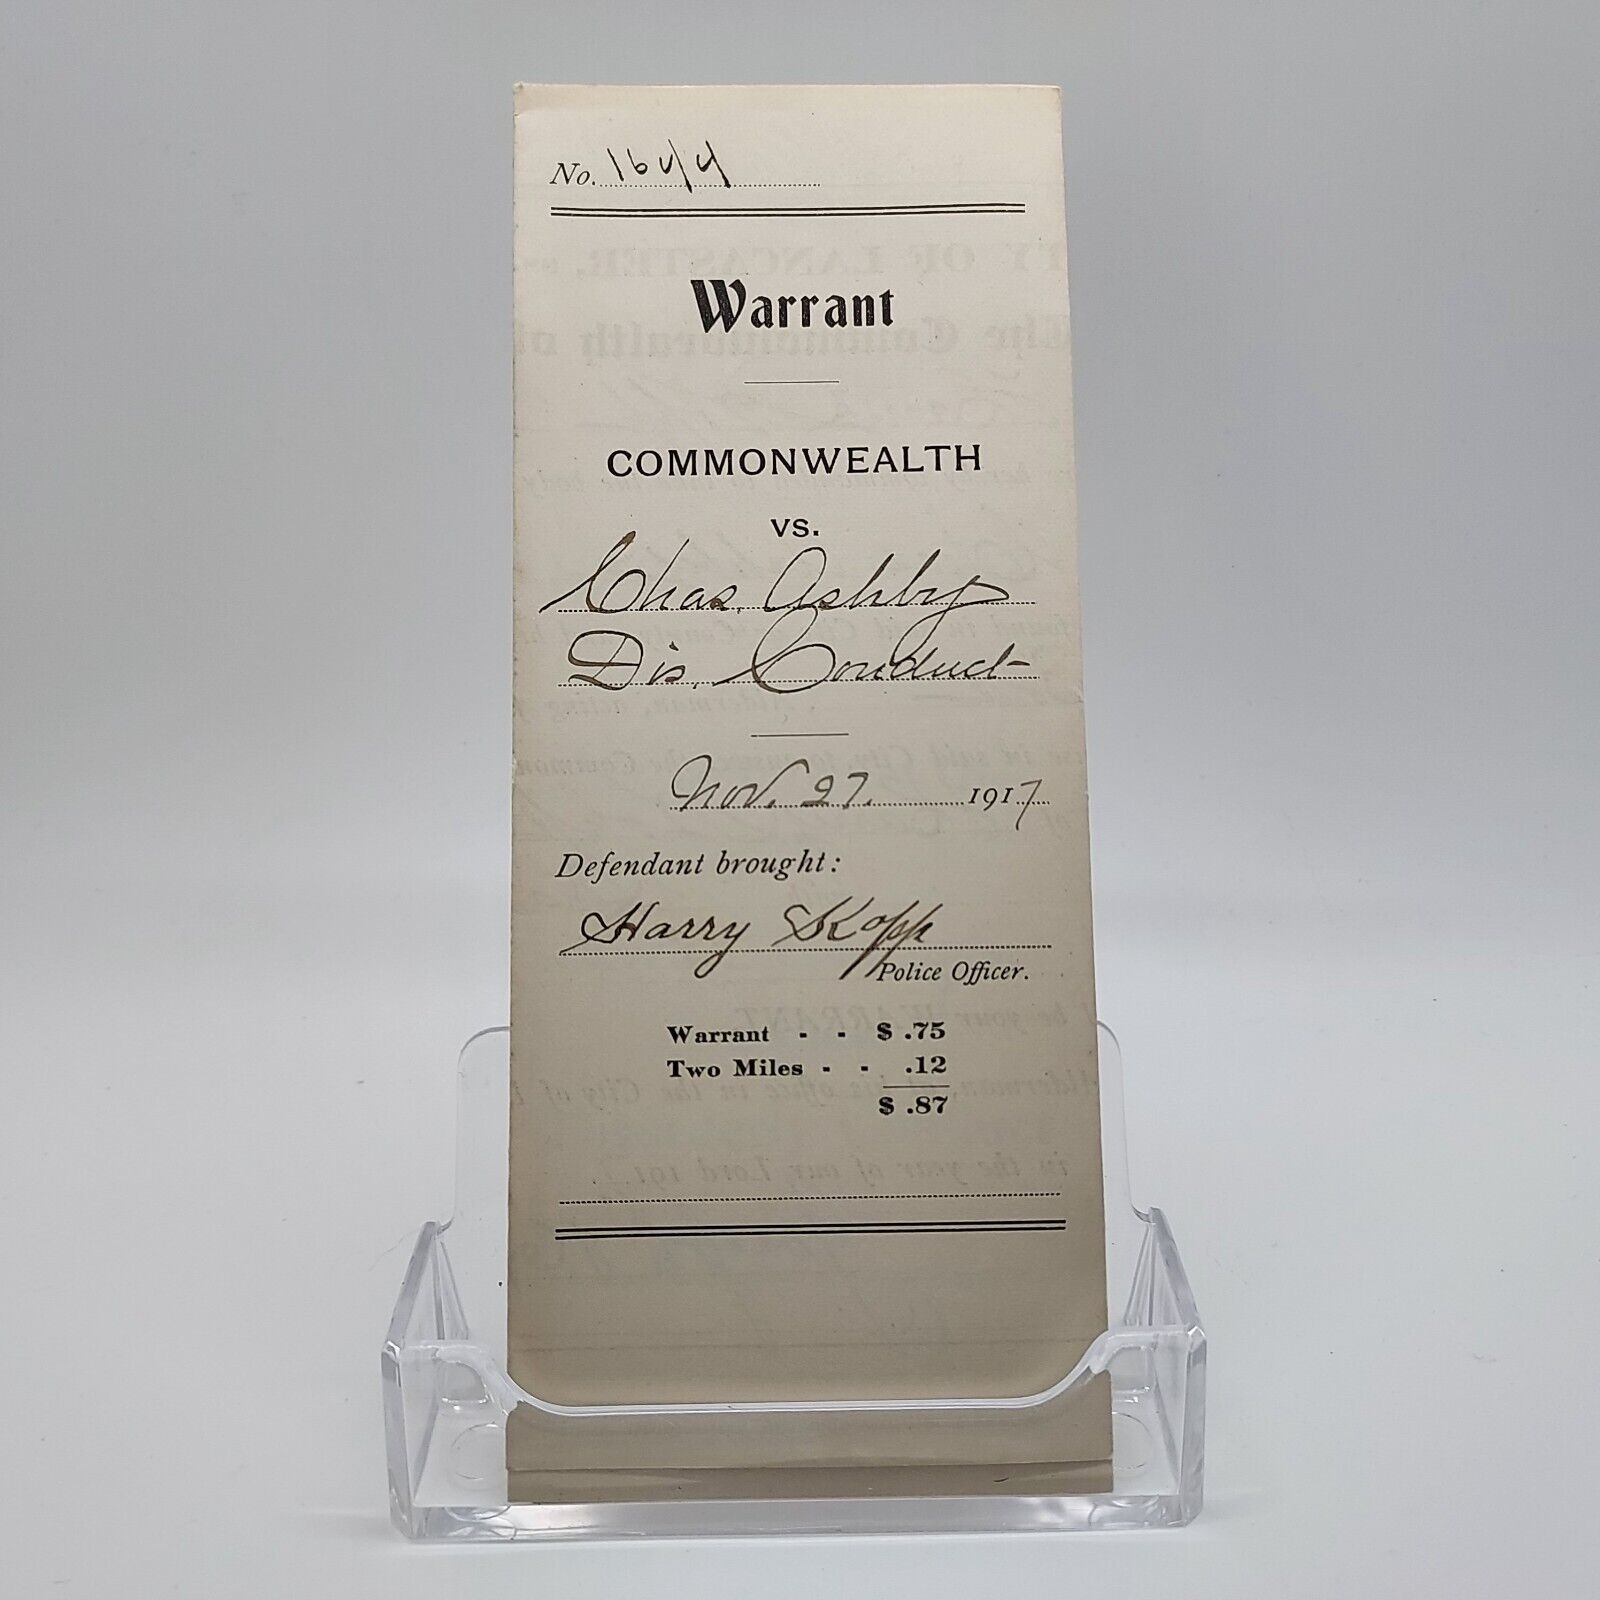 No. 1644
Warrant
COMMONWEALTH
VS.
Chas. Ashby
Dis. Conduct
Nov. 27. 1917
Defendant brought:
Harry Kopp
Police Officer.
Warrant - - $ .75
Two Miles - - .12
$ .87